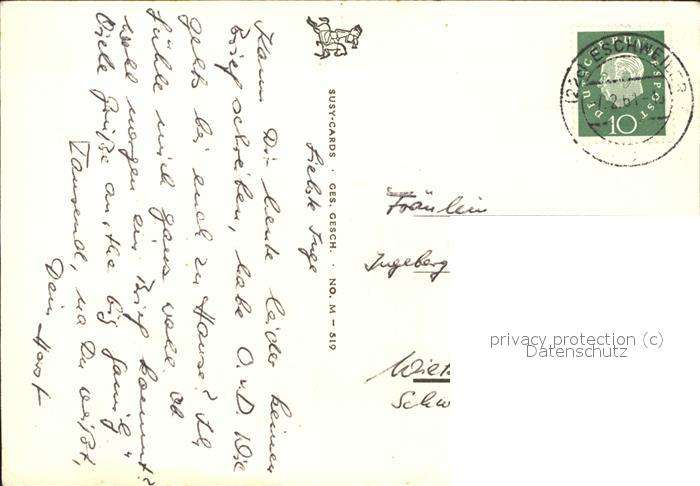 Liebste Inge
Kann Dir heute leider keinen
Brief schreiben, habe O.v.D. Wie
gehts bei euch zu Hause? Ich
fühle mich ganz wohl. Ob
wohl morgen ein Brief kommt?
Viele Grüße an „the big family“
Tausend, na Du weißt,
Dein Horst
SUSY-CARDS · GES. GESCH. · NO. M – 519
DEUTSCHE BUNDESPOST
10
ESCHWEILER
Fräulein
Ingeborg
Schw
privacy protection (c)
Datenschutz